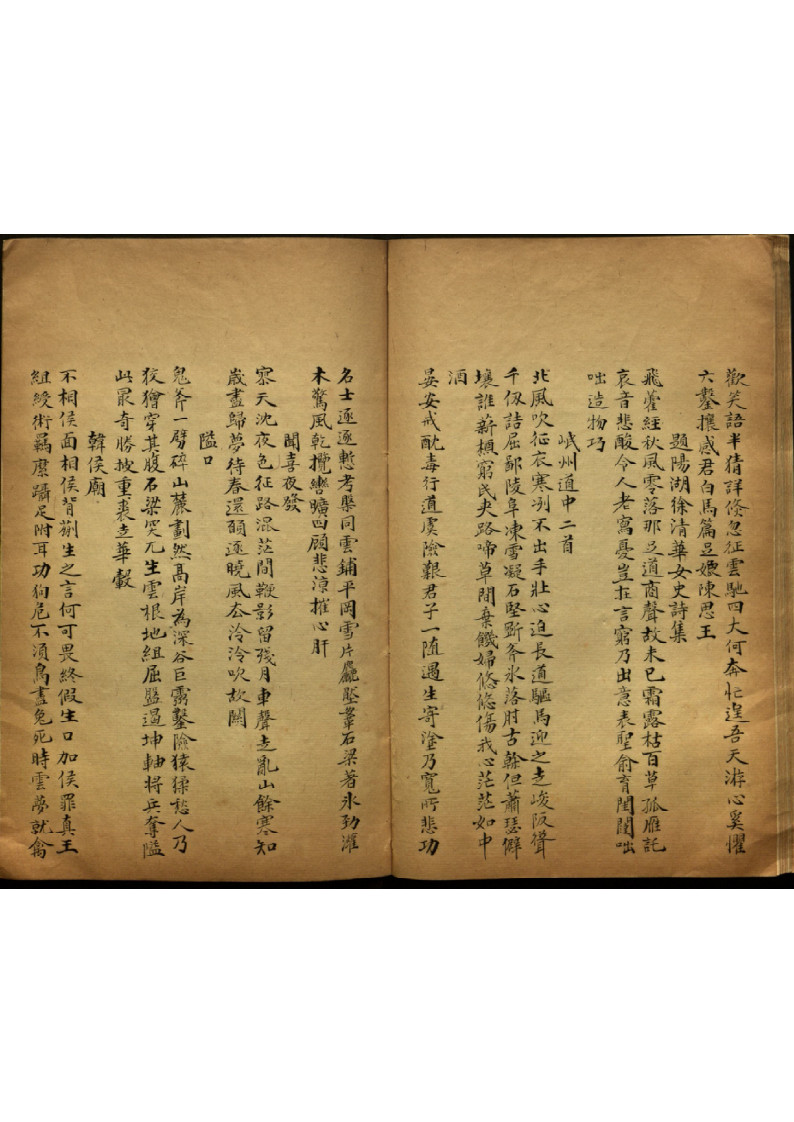 歡笑語半猜詳倏忽征雲馳四大何奔忙逞吾天游心奚懼
六鑿攘感君白馬篇足嫓陳思王
題陽湖徐清華女史詩集
飛藿經秋風零落那足道商聲故未已霜露枯百草孤雁託
哀音悲酸令人老寓憂豈在言窮乃出意表聖俞育閨閣咄
咄造物巧
岷州道中二首
北風吹征衣寒冽不出手壯心迫長道驅馬迎之走峻阪聳
千仞詰屈鄙陵阜凍雪凝石堅斷斧氷落肘古榦但蕭瑟僻
壤誰薪槱窮氓夾路啼草間棄餓婦悠悠傷我心茫茫如中
酒
晏安戒酖毒行道虞險艱君子一隨遇生寄塗乃寬所悲功
名士逐逐慙考槃同雲鋪平岡雪片麤壓鞌石梁著氷勁灌
木驚風乾攬轡曠四顧悲涼摧心肝
聞喜夜發
寒天沈夜色征路混茫間鞭影留殘月車聲走亂山餘寒知
歲盡歸夢待春還頠逐曉風去泠泠吹故關
隘口
鬼斧一劈碎山麓劃然高岸為深谷巨靈鑿險猿猱愁人乃
狡獪穿其腹石梁突兀生雲根地組屈盤過坤軸將兵奪隘
此最奇勝披重裘走華轂
韓侯廟
不相侯面相侯背蒯生之言何可畏終假生口加侯罪真王
組綬術羈縻躡足附耳功狗危不須鳥盡兔死時雲夢就禽